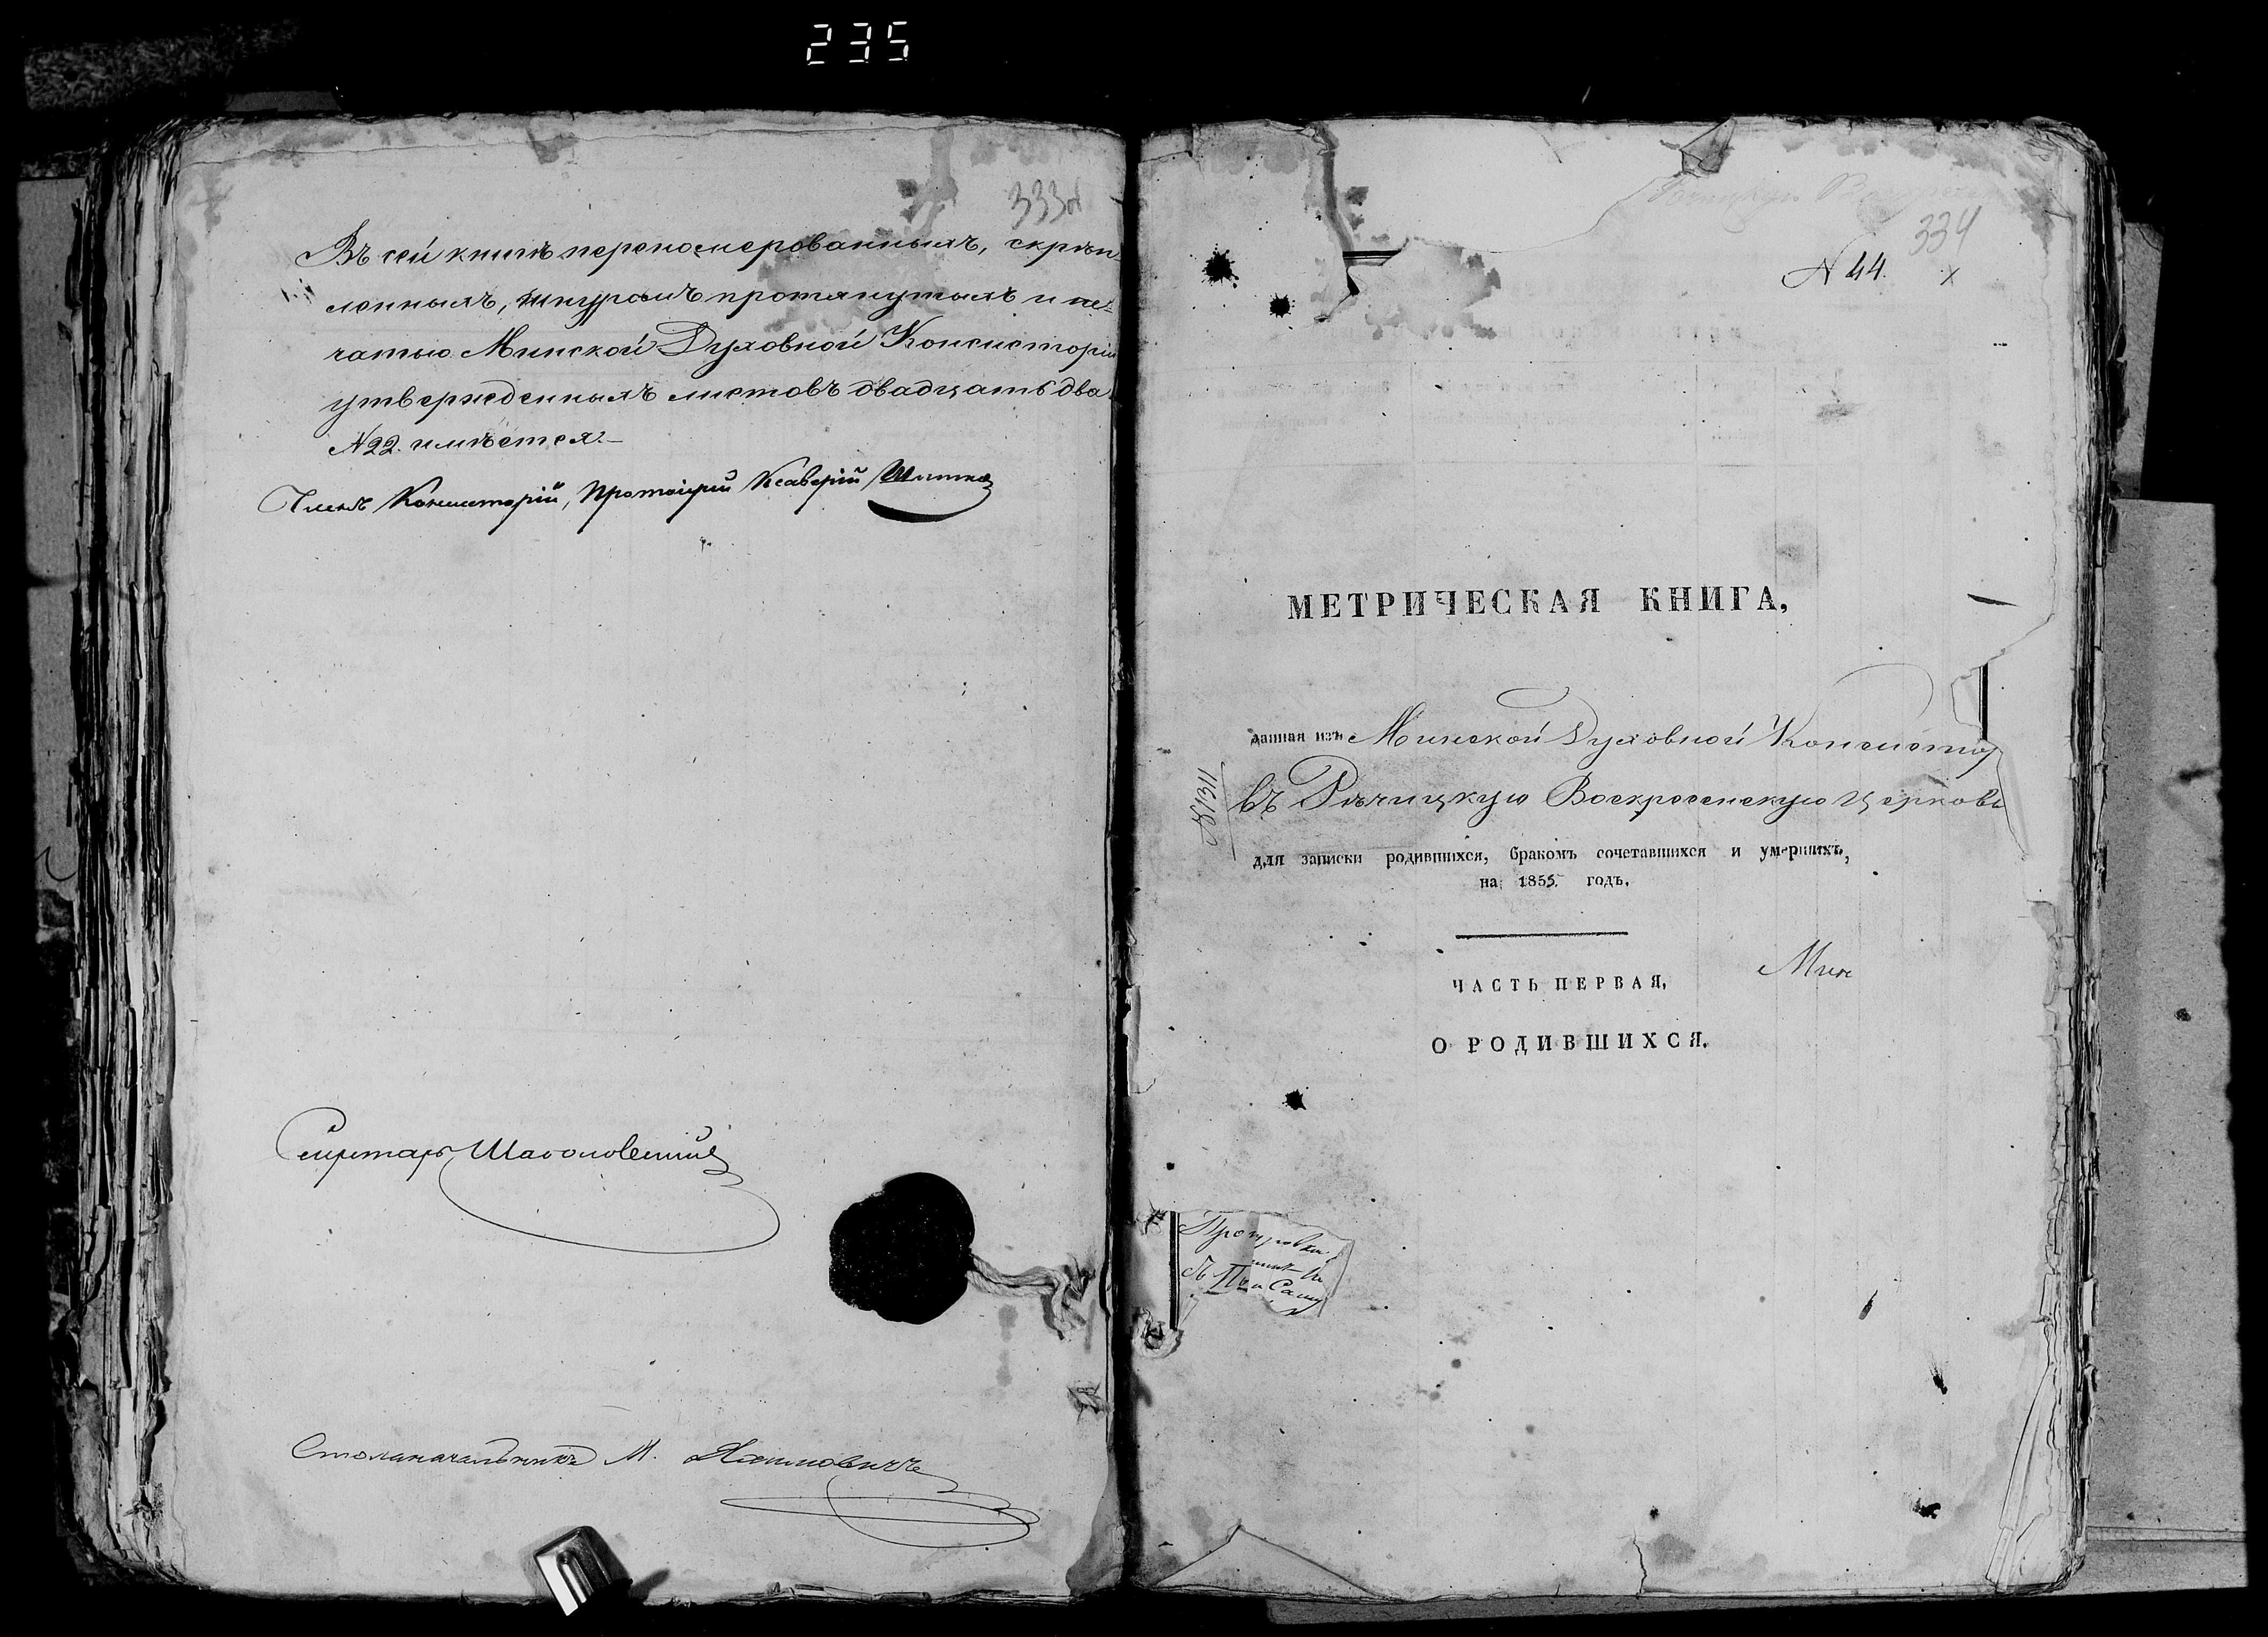 235
333об
Въ сей книгѣ перенумерованныхъ, скрѣп-
ленныхъ, шнуромъ протянутыхъ и пе-
чатью Минской Духовной Консисторіи
утвержденныхъ листовъ двадцать два
№ 22. имѣется.—
Членъ Консисторіи, Протоіерей Ксаверій
Секретарь
Столоначальникъ М. Яхимовичъ
334
№ 44. х
МЕТРИЧЕСКАЯ КНИГА,
данная изъ Минской Духовной Консисто
№ 1311
въ Рѣчицкую Воскресенскую церковь
для записки родившихся, бракомъ сочетавшихся и умершихъ,
на 1855. годъ.
Мин
ЧАСТЬ ПЕРВАЯ,
О РОДИВШИХСЯ.